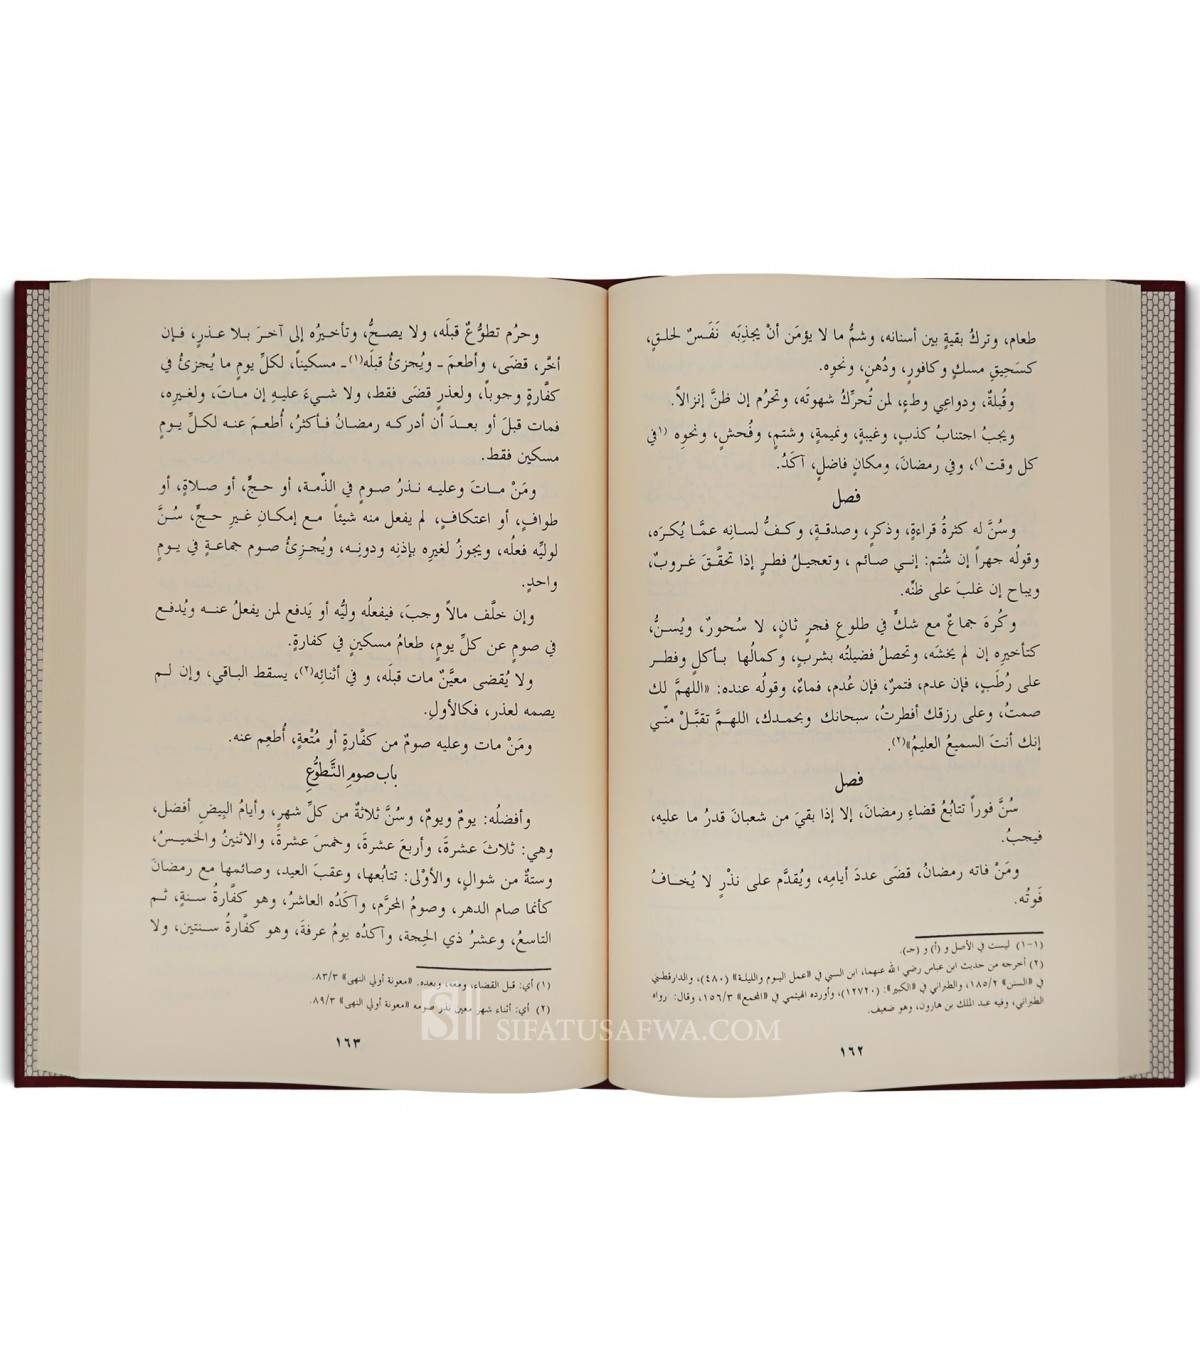 طعام، وتركُ بقيةٍ بين أسنانه، وشمُّ ما لا يؤمَن أنْ يجذِبَه نَفَسٌ لحلقٍ،
كسَحِيقِ مسكٍ وكافورٍ، ودُهنٍ، ونحوِه.
وقُبلةٌ، ودواعِي وطءٍ، لمن تُحرِّكُ شهوتَه، وتحرُم إن ظنَّ إنزالاً.
ويجبُ اجتنابُ كذبٍ، وغيبةٍ، ونميمةٍ، وشتمٍ، وفُحشٍ، ونحوِه (١في
كل وقت١)، وفي رمضانَ، ومكانٍ فاضلٍ، آكَدُ.
فصل
وسُنَّ له كثرةُ قراءةٍ، وذكرٍ، وصدقةٍ، وكفُّ لسانِه عمَّا يُكرَه،
وقولُه جهراً إن شُتم: إنـي صائم ، وتعجيلُ فطرٍ إذا تحقَّقَ غروبٌ،
ويباح إن غلبَ على ظنِّه.
وكُرهَ جماعٌ مع شكٍّ في طلوعِ فجرٍ ثانٍ، لا سُحورٌ، ويُسنُّ،
كتأخيرِه إن لم يخشَه، وتحصلُ فضيلتُه بشربٍ، وكمالُها بأكلٍ وفطر
على رُطَبٍ، فإن عدم، فتمرٌ، فإن عُدم، فماءٌ، وقولُه عنده: «اللهمَّ لك
صمتُ، وعلى رزقك أفطرتُ، سبحانك وبحمدك، اللهمَّ تقبَّلْ منِّي
إنك أنتَ السميعُ العليمُ»(٢).
فصل
سُنَّ فوراً تتابُعُ قضاءِ رمضانَ، إلا إذا بقيَ من شعبانَ قدرُ ما عليه،
فيجبُ.
ومَنْ فاته رمضانُ، قضَى عددَ أيامِه، ويُقدَّم على نذْرٍ لا يُخافُ
فَوتُه.
(١-١) ليست في الأصل و (أ) و (جـ).
(٢) أخرجه من حديث ابن عباس رضي الله عنهما، ابن السني في «عمل اليوم والليلة» (٤٨٠)، والدارقطني
في «السنن» ١٨٥/٢، والطبراني في «الكبير»: (١٢٧٢٠)، وأورده الهيثمي في «المجمع» ١٥٦/٣، وقال: رواه
الطبراني، وفيه عبد الملك بن هارون، وهو ضعيف.
١٦٢
وحرُم تطوُّعٌ قبلَه، ولا يصحُّ، وتأخيرُه إلى آخرَ بلا عذرٍ، فإن
أخَّر، قضَى، وأطعمَ ـ ويُجزئُ قبلَه(١) ـ مسكيناً، لكلِّ يومٍ ما يُجزئُ في
كفَّارةٍ وجوباً، ولعذرٍ قضَى فقط، ولا شيءَ عليهِ إن ماتَ، ولغيرِه،
فمات قبلَ أو بعدَ أن أدركه رمضانُ فأكثرُ، أُطعمَ عنه لكلِّ يومٍ
مسكين فقط.
ومَنْ ماتَ وعليه نذرُ صومٍ في الذِّمة، أو حجٍّ، أو صلاةٍ، أو
طوافٍ، أو اعتكافٍ، لم يفعل منه شيئاً مع إمكانِ غيرِ حجٍّ، سُنَّ
لوليِّه فعلُه، ويجوزُ لغيرِه بإذنِه ودونِه، ويُجزِئُ صوم جماعةٍ في يومٍ
واحدٍ.
وإن خلَّف مالاً وجبَ، فيفعلُه وليُّه أو يَدفع لمن يفعلُ عنه ويُدفع
في صومٍ عن كلِّ يومٍ، طعامُ مسكينٍ في كفارةٍ.
ولا يُقضى معيَّنٌ مات قبلَه، و في أثنائِه(٢)، يسقط الباقي، وإن لم
يصمه لعذر، فكالأولِ.
ومَنْ مات وعليه صومٌ من كفَّارةٍ أو مُتْعةٍ، أُطعِم عنه.
باب صومِ التَّطوُّعِ
وأفضلُه: يومٌ ويومٌ، وسُنَّ ثلاثةٌ من كلِّ شهرٍ، وأيامُ البِيضِ أفضل،
وهي: ثلاثَ عشرةَ، وأربعَ عشرةَ، وخمسَ عشرةَ، والاثنينُ والخميسُ،
وستةٌ من شوالٍ، والأَوْلى: تتابُعها، وعقبَ العيد، وصائمها مع رمضانَ
كأنما صام الدهر، وصومُ المحرَّم، وآكدُه العاشرُ، وهو كفَّارةُ سنةٍ، ثم
التاسعُ، وعشرُ ذي الحِجة، وآكدُه يومُ عرفةَ، وهو كفَّارةُ سنتين، ولا
(١) أي: قبل القضاء، ومعه، وبعده. «معونة أولي النهى» ٨٣/٣.
(٢) أي: أثناء شهر معين نذر صومه «معونة أولي النهى» ٨٩/٣.
١٦٣
SIFATUSAFWA.COM